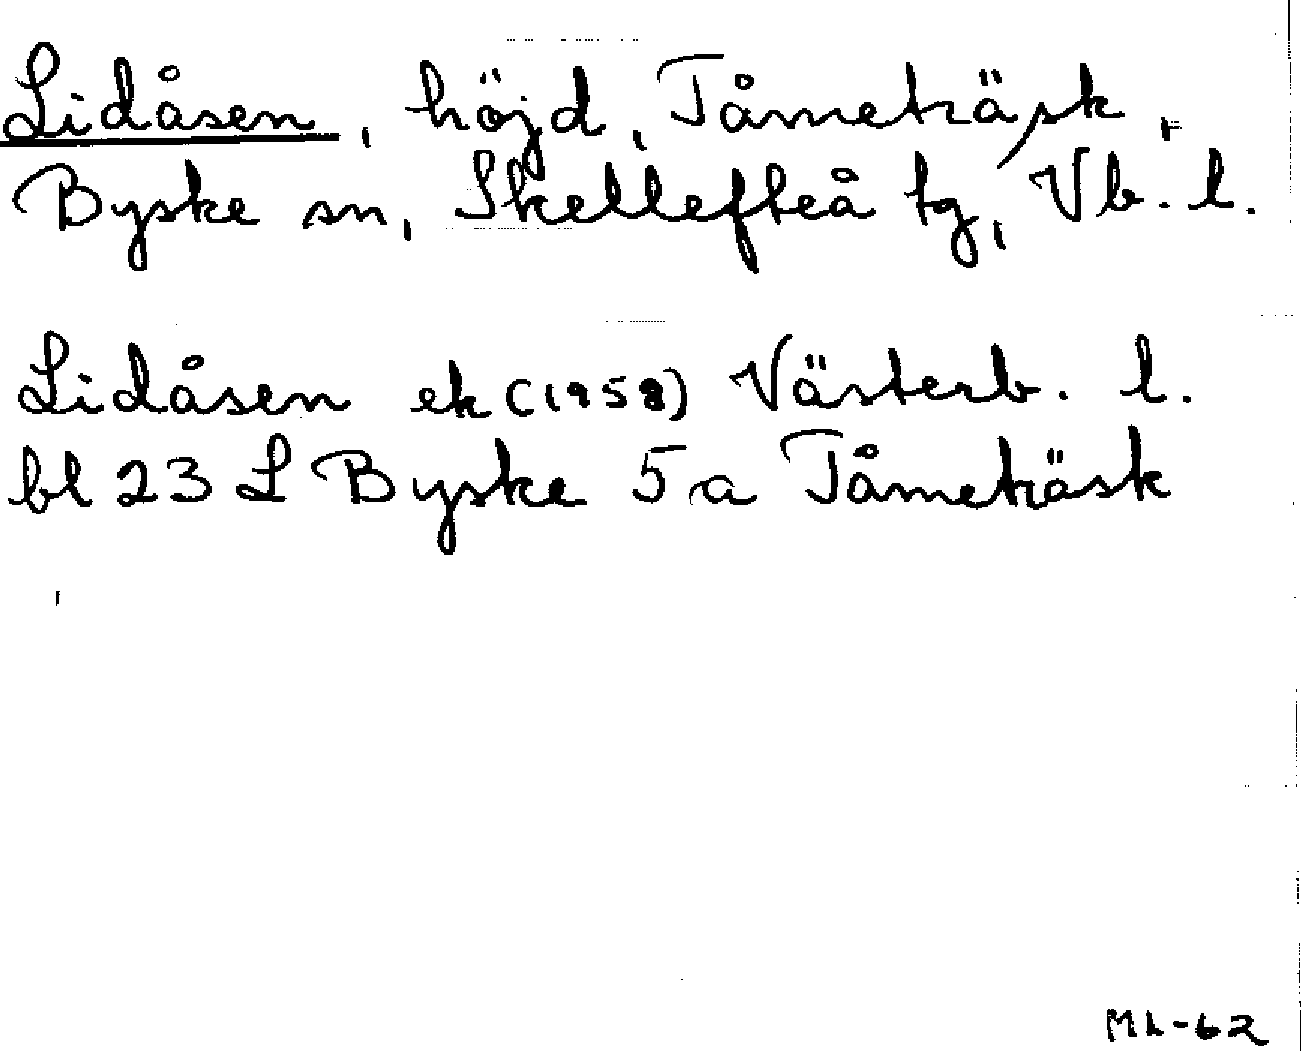 Lidåsen, höjd, Tåmeträsk,
Byske sn, Skellefteå tg, Vb. l.
Lidåsen ek (1958) Västerb. l.
bl 23 L Byske 5 a Tåmeträsk
ML-62